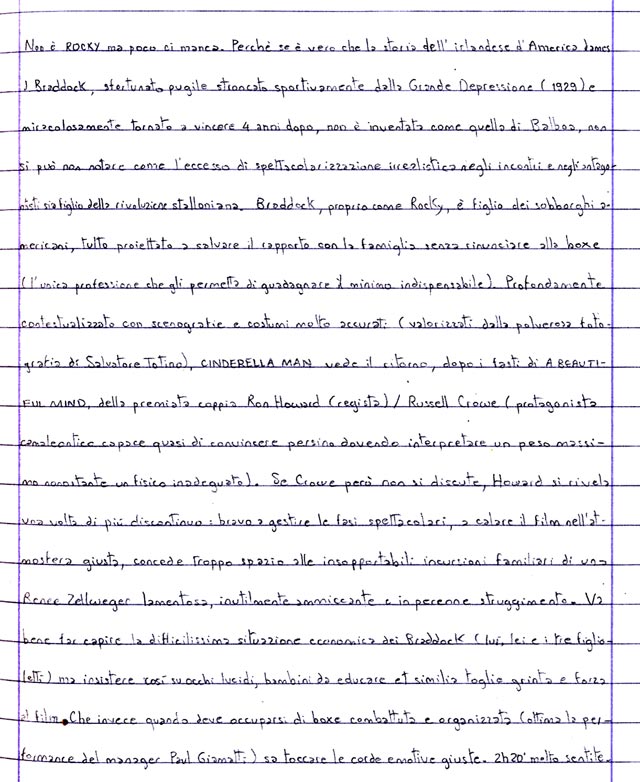 Non è ROCKY ma poco ci manca. Perchè se è vero che la storia dell'irlandese d'America James
J Braddock, sfortunato pugile stroncato sportivamente dalla Grande Depressione (1929) e
miracolosamente tornato a vincere 4 anni dopo, non è inventata come quella di Balboa, non
si può non notare come l'eccesso di spettacolarizzazione irrealistica negli incontri e negli antago-
nisti sia figlio della rivoluzione stalloniana. Braddock, proprio come Rocky, è figlio dei sobborghi a-
mericani, tutto proiettato a salvare il rapporto con la famiglia senza rinunciare alla boxe
(l'unica professione che gli permetta di guadagnare il minimo indispensabile). Profondamente
contestualizzato con scenografie e costumi molto accurati (valorizzati dalla polverosa foto-
grafia di Salvatore Totino), CINDERELLA MAN vede il ritorno, dopo i fasti di A BEAUTI-
FUL MIND, della premiata coppia Ron Howard (regista) / Russell Crowe (protagonista
camaleontico capace quasi di convincere persino dovendo interpretare un peso massi-
mo nonostante un fisico inadeguato). Se Crowe però non si discute, Howard si rivela
una volta di più discontinuo: bravo a gestire le fasi spettacolari, a calare il film nell'at-
mosfera giusta, concede troppo spazio alle insopportabili incursioni familiari di una
Renee Zellweger lamentosa, inutilmente ammiccante e in perenne struggimento. Va
bene far capire la difficilissima situazione economica dei Braddock (lui, lei e i tre figlio-
letti) ma insistere così su occhi lucidi, bambini da educare et similia toglie grinta e forza
al film. Che invece quando deve occuparsi di boxe combattuta e organizzata (ottima la per-
formance del manager Paul Giamatti) sa toccare le corde emotive giuste. 2h20' molto sentite.